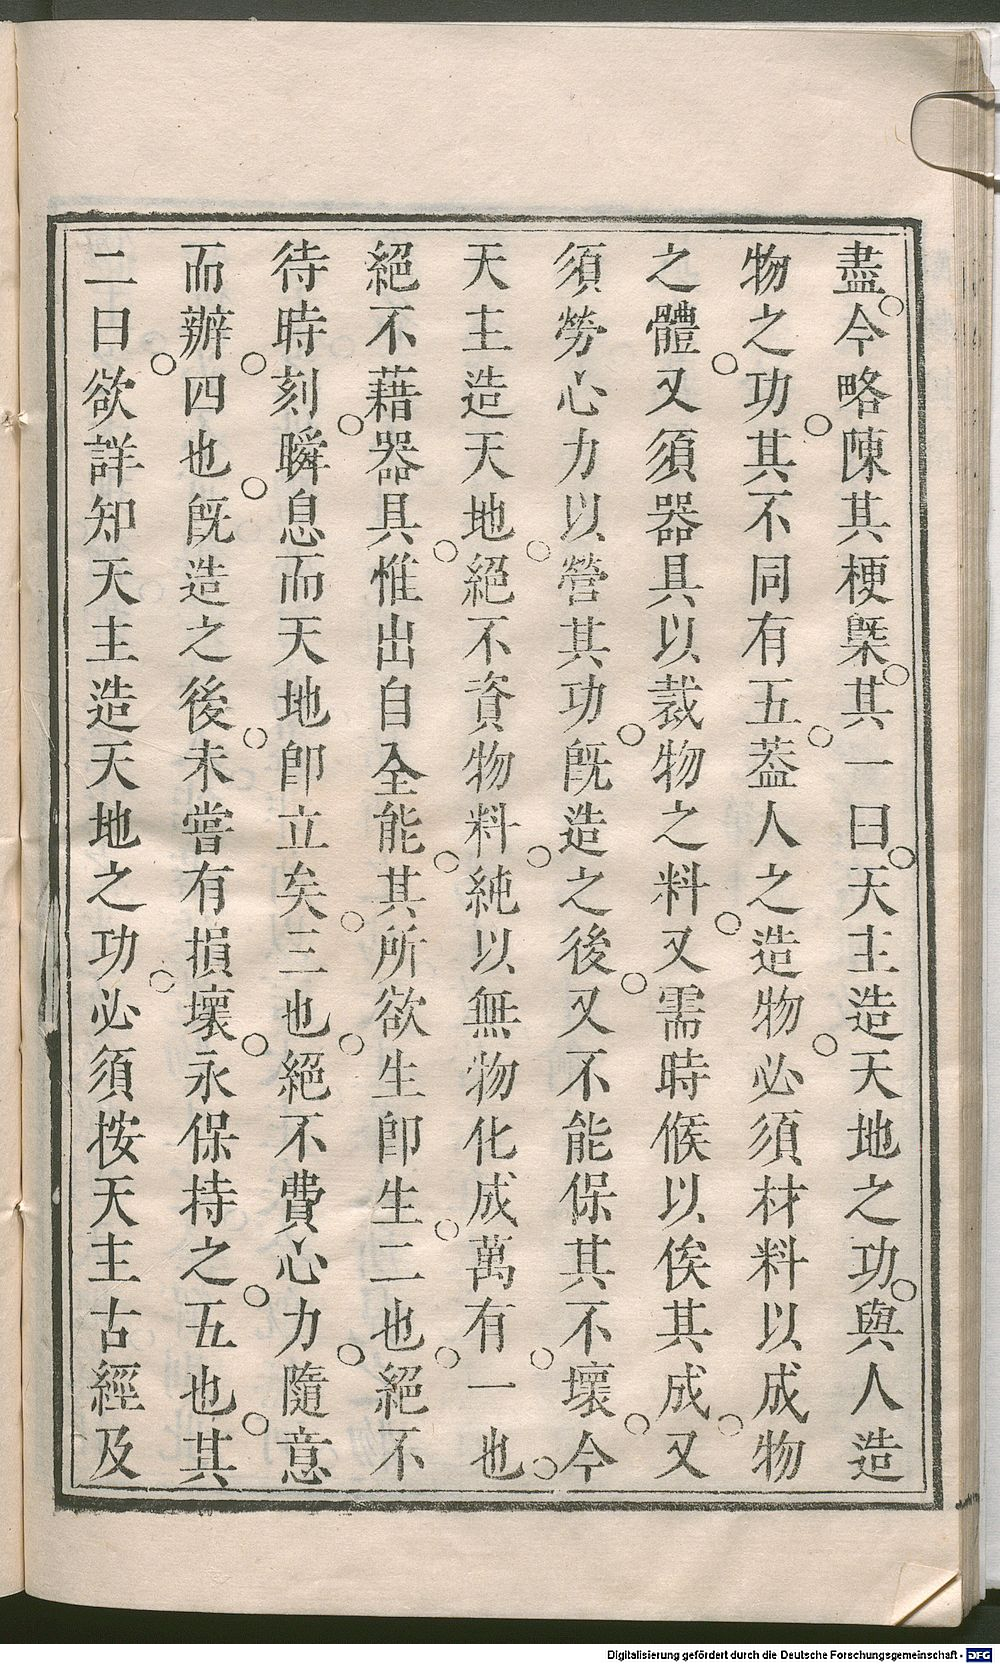 盡。今略陳其梗槩。其一曰。天主造天地之功。與人造
物之功。其不同有五。葢人之造物。必須材料以成物
之體。又須器具以裁物之料。又需時候以俟其成。又
須勞心力以營其功。旣造之後。又不能保其不壞。今
天主造天地。絕不資物料。純以無物化成萬有。一也。
絕不藉器具。惟出自全能。其所欲生卽生。二也。絕不
待時刻。瞬息而天地卽立矣。三也。絕不費心力。隨意
而辦。四也。旣造之後。未嘗有損壞。永保持之。五也。其
二曰。欲詳知天主造天地之功。必須按天主古經及
Digitalisierung gefördert durch die Deutsche Forschungsgemeinschaft - DFG